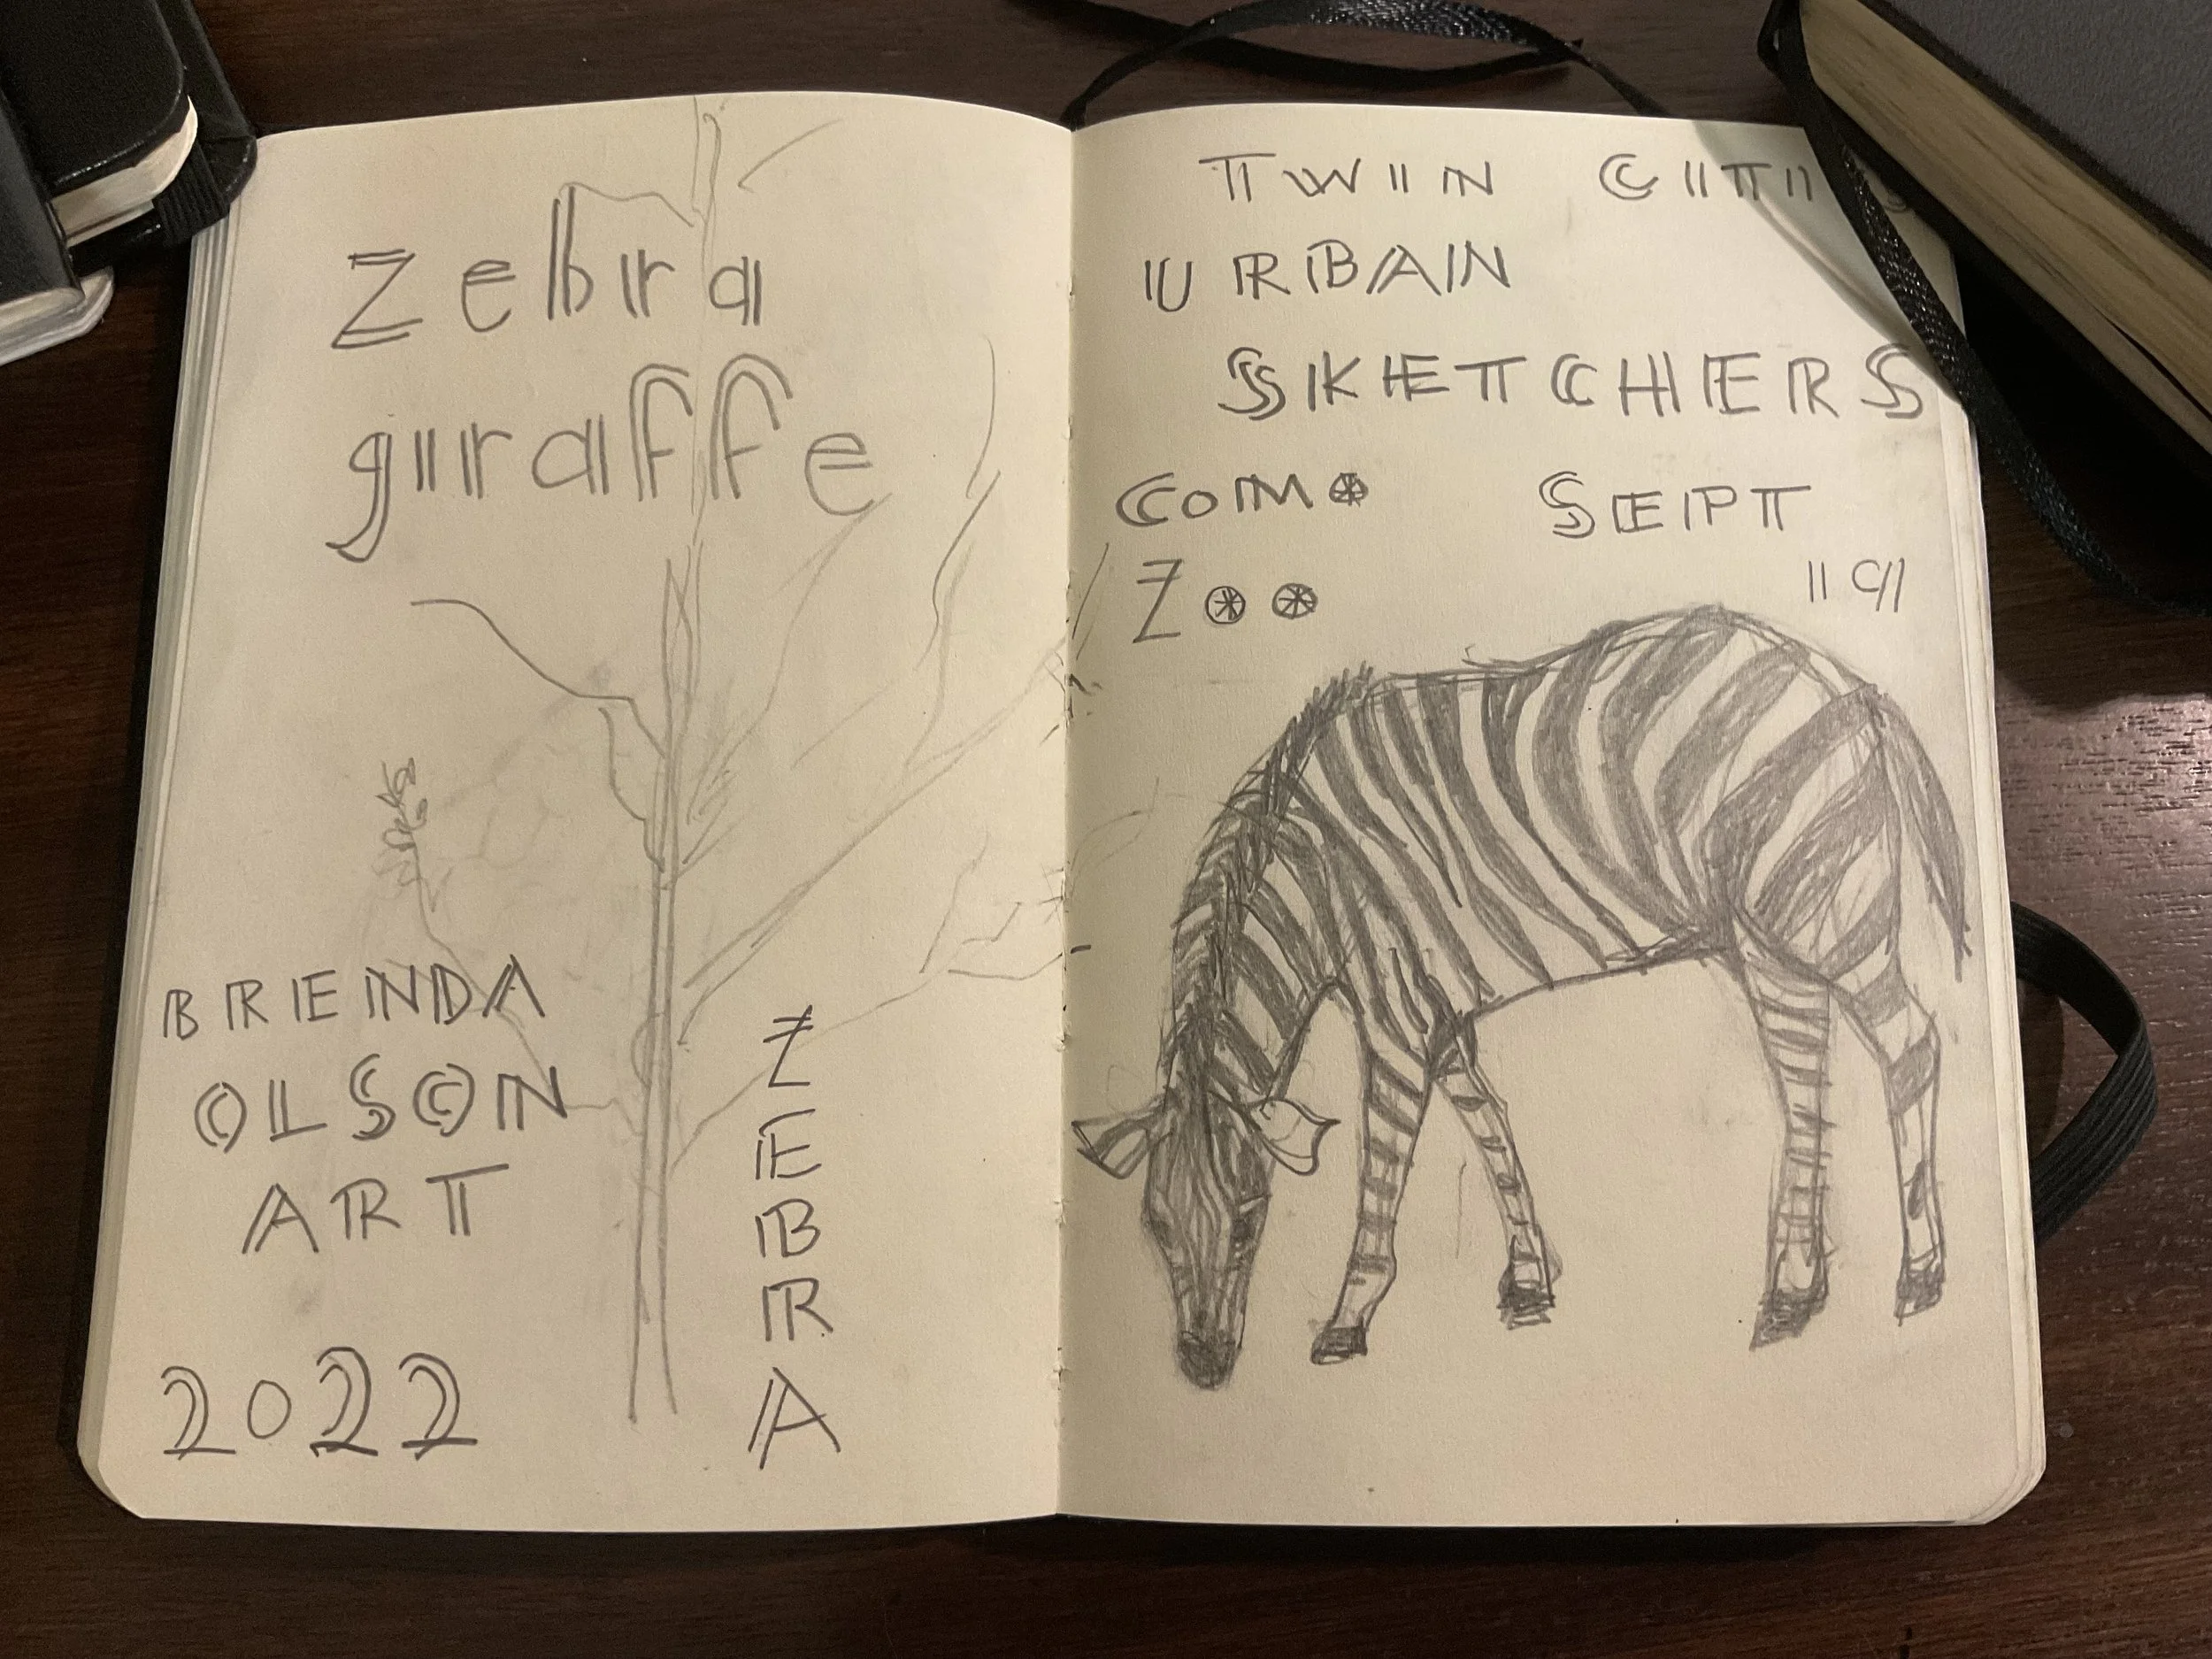 zebra
giraffe
BRENDA
OLSON
ART
2022
ZEBRA
TWIN CITI
URBAN
SKETCHERS
COMO
ZOO
SEPT
19